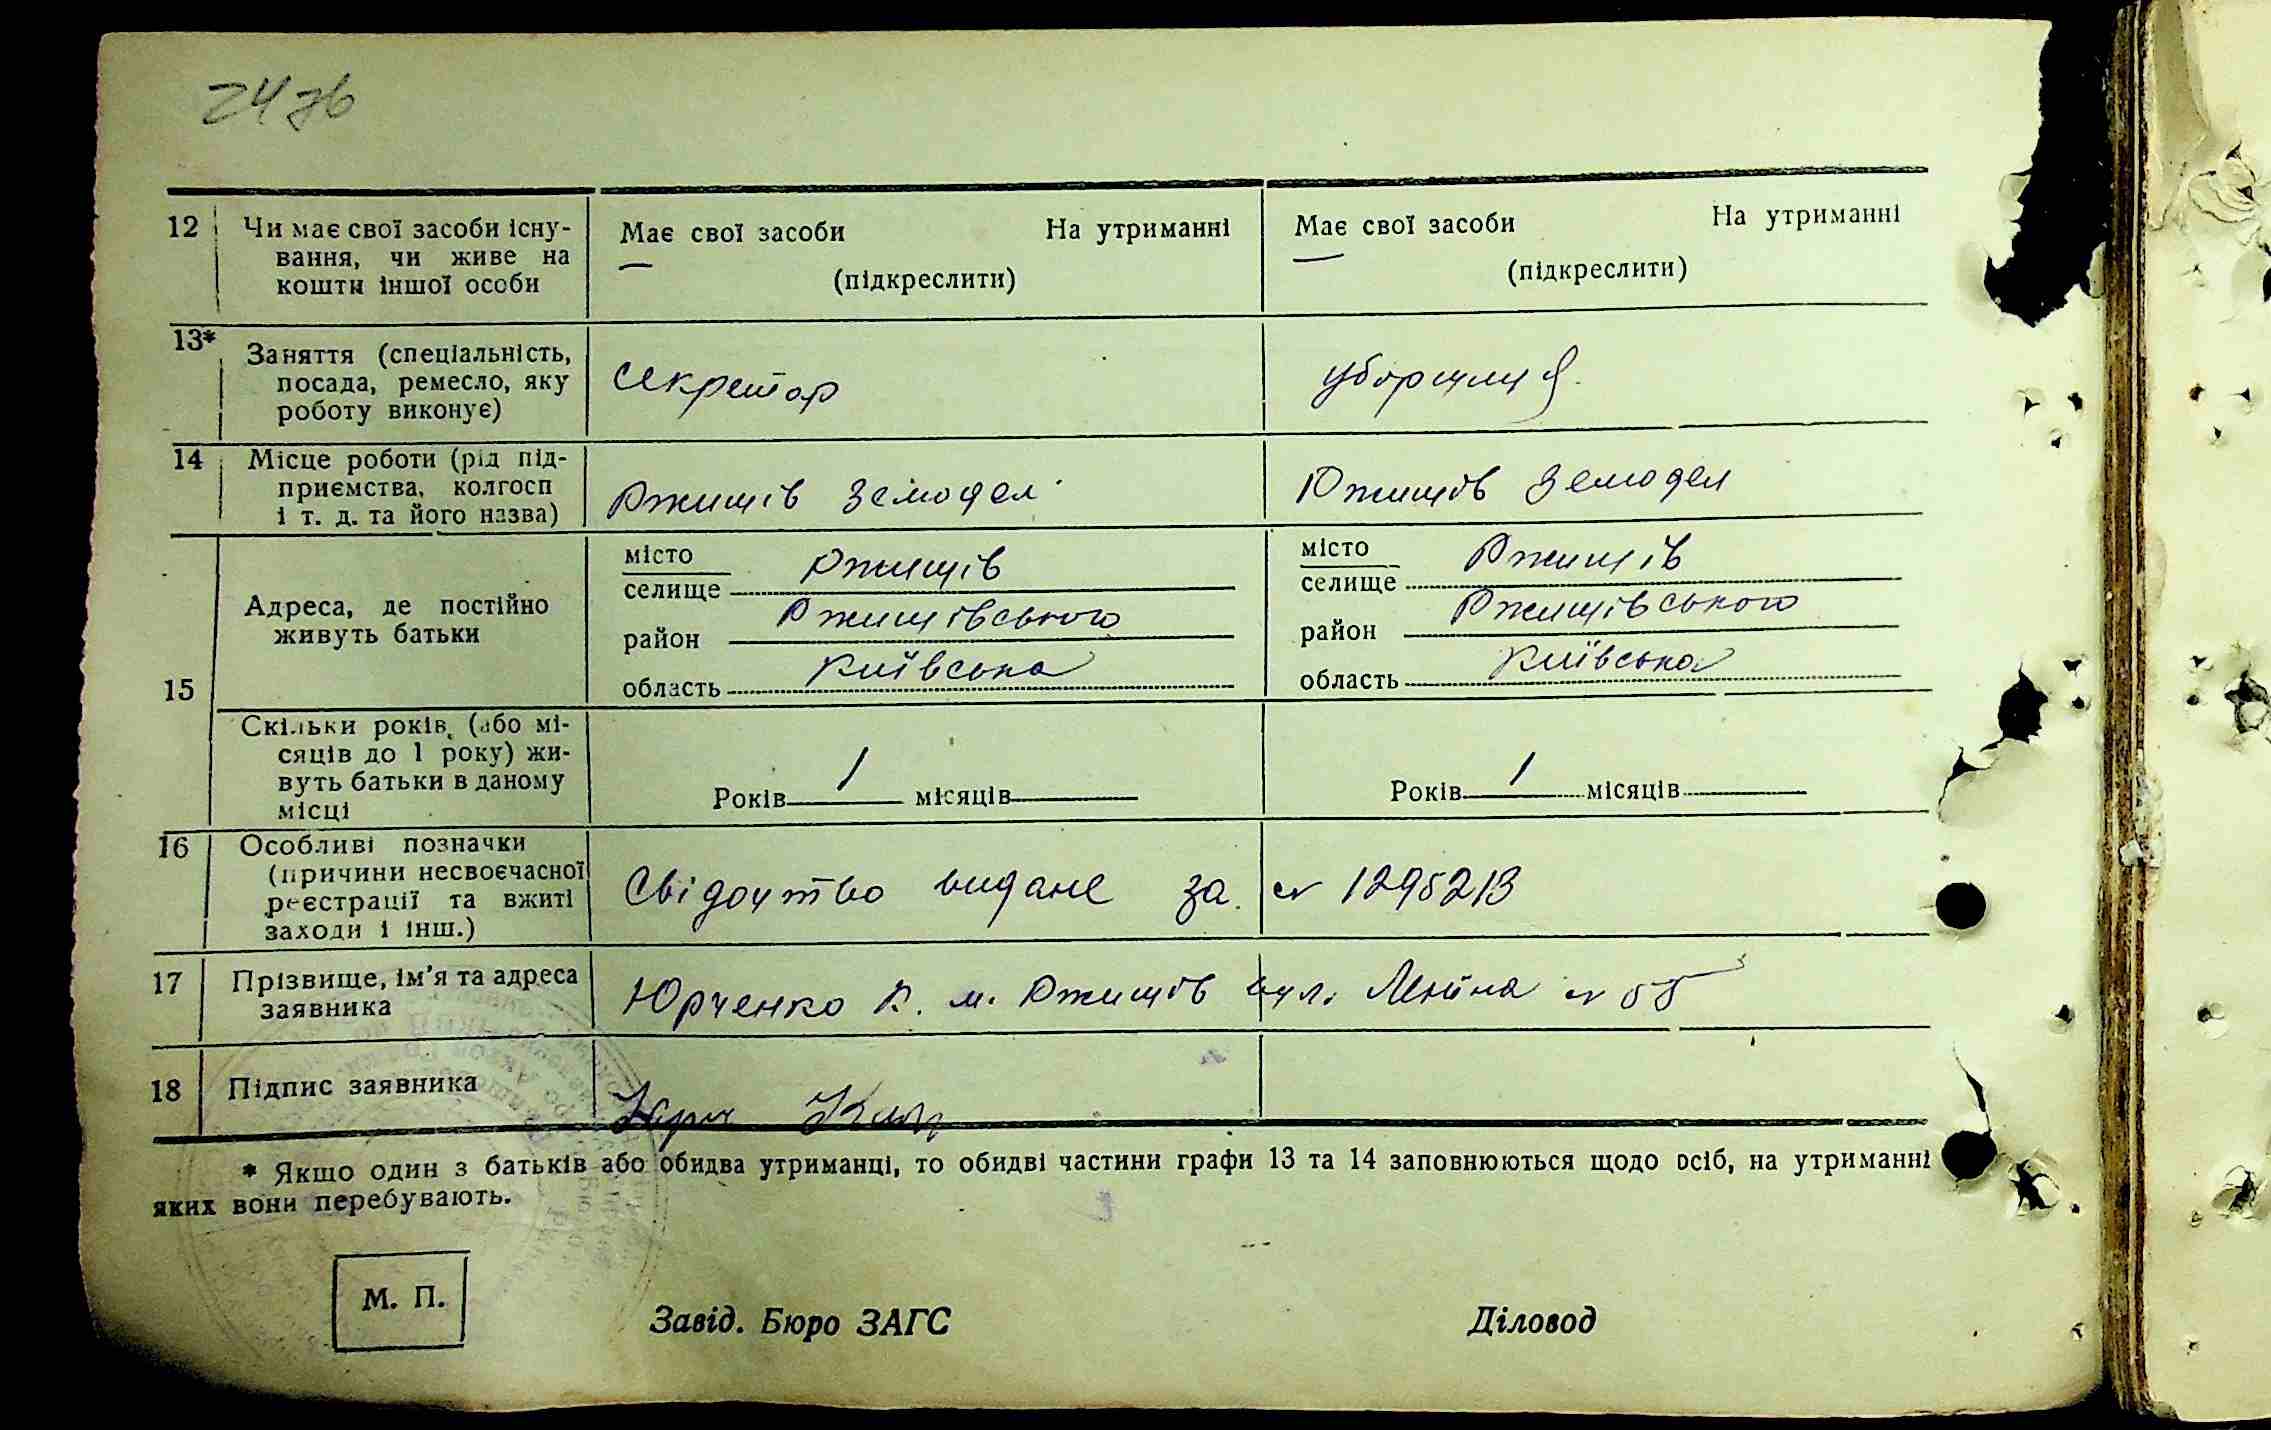 247в
12 Чи має свої засоби існу- Має свої засоби На утриманні Має свої засоби На утриманні
вання, чи живе на
кошти іншої особи (підкреслити) (підкреслити)
13* Заняття (спеціальність,
посада, ремесло, яку секретар уборщиця
роботу виконує)
14 Місце роботи (рід під-
приємства, колгосп Ржищів Земотдел Ржищів Земотдел
і т. д. та його назва)
15 Адреса, де постійно
живуть батьки
місто Ржищів місто Ржищів
селище селище
район Ржищівського район Ржищівського
область Київська область Київська
Скільки років (або мі-
сяців до 1 року) жи-
вуть батьки в даному Років 1 місяців Років 1 місяців
місці
16 Особливі позначки
(причини несвоєчасної Свідоцтво видане за № 1295213
реєстрації та вжиті
заходи і інш.)
17 Прізвище, ім'я та адреса Юрченко К. м. Ржищів вул. Леніна № 55
заявника
18 Підпис заявника
* Якщо один з батьків або обидва утриманці, то обидві частини графи 13 та 14 заповнюються щодо осіб, на утриманні
яких вони перебувають.
М. П.
Завід. Бюро ЗАГС Діловод